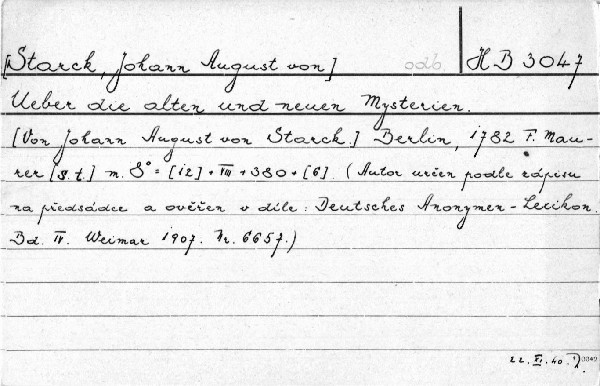 [Starck, Johann August von] odb. H B 3047
Ueber die alten und neuen Mysterien.
[Von Johann August von Starck.] Berlin, 1782 F. Mau-
rer [s. t.] m. 8° = [12] + VIII + 380 + [6]. (Autor určen podle zápisu
na předsádce a ověřen v díle: Deutsches Anonymen-Lexikon.
Bd. IV. Weimar 1907. Nr. 6657.)
22. XI. 40.